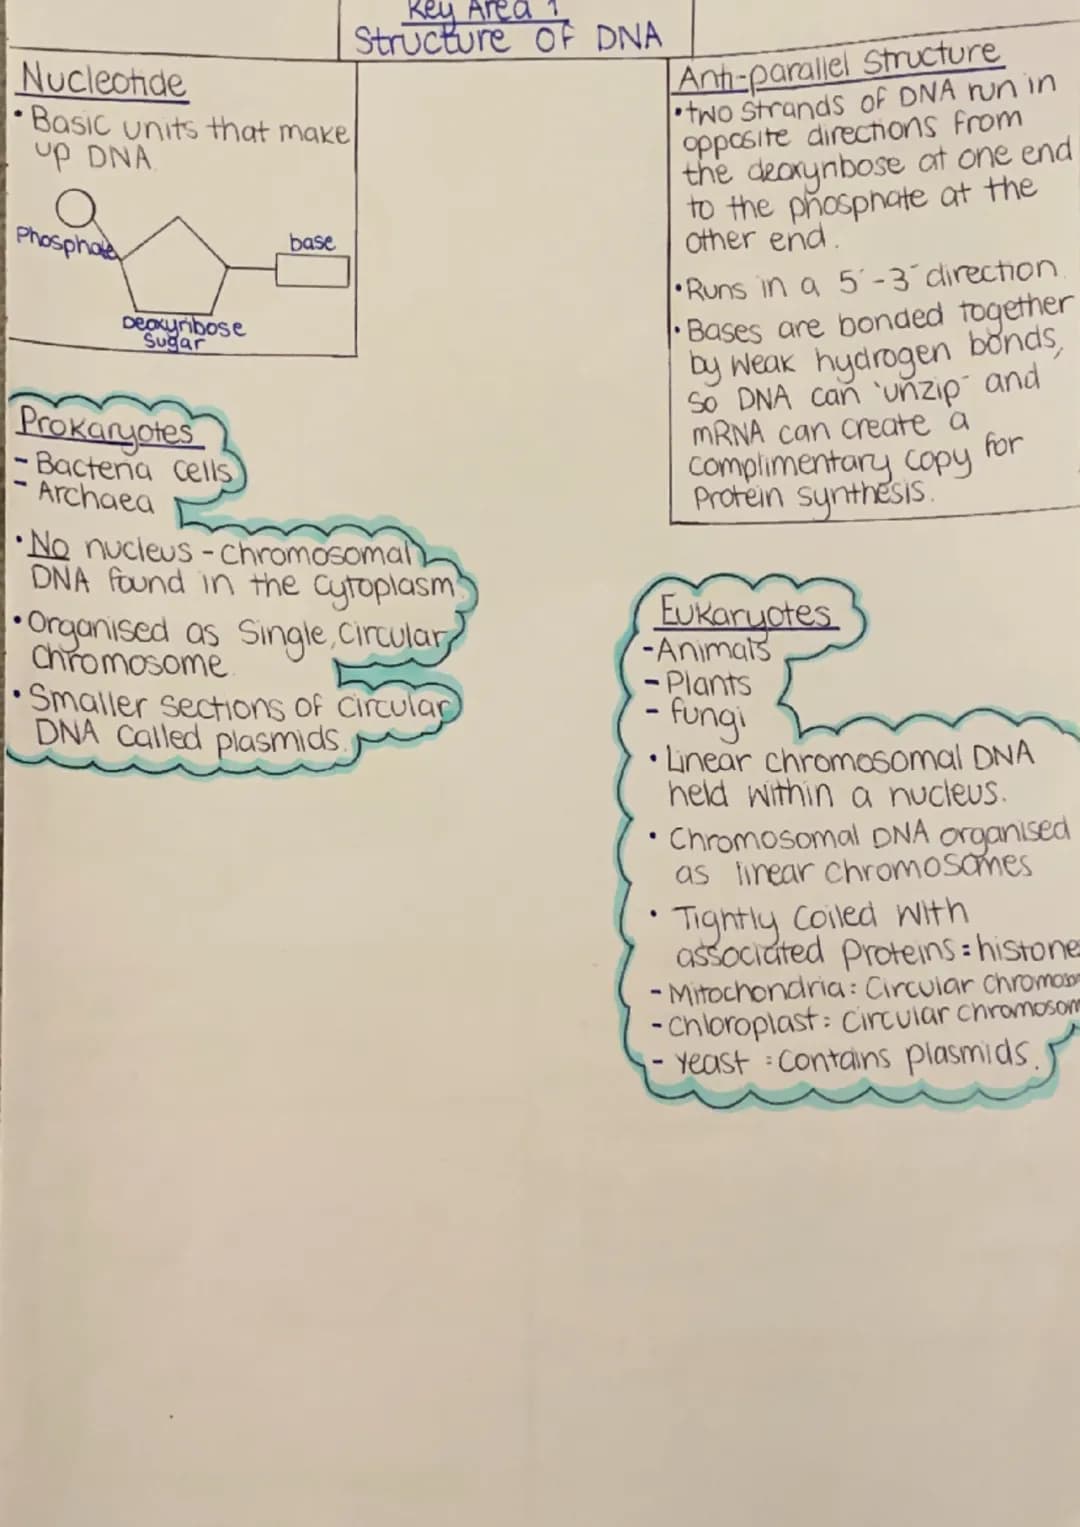 Key Area 1
Structure of DNA
Nucleotide
• Basic units that make
up DNA.
Phosphate
base
Deoxyribose
Sugar
Anti-parallel Structure
• two strands of DNA run in
opposite directions from
the deoxyribose at one end
to the phosphate at the
other end.
• Runs in a 5´-3´ direction.
• Bases are bonded together
by weak hydrogen bonds,
so DNA can 'unzip' and
mRNA can create a
complimentary copy for
Protein synthesis.
Prokaryotes
- Bacteria cells
- Archaea
• No nucleus - chromosomal
DNA found in the cytoplasm.
• Organised as Single, Circular
Chromosome.
• Smaller sections of circular
DNA Called plasmids.
Eukaryotes
- Animals
- Plants
- fungi
• Linear chromosomal DNA
held within a nucleus.
• Chromosomal DNA organised
as linear chromosomes
• Tightly Coiled with
associated Proteins = histone
- Mitochondria: Circular Chromoso
- Chloroplast: Circular chromosom
- Yeast : Contains plasmids.